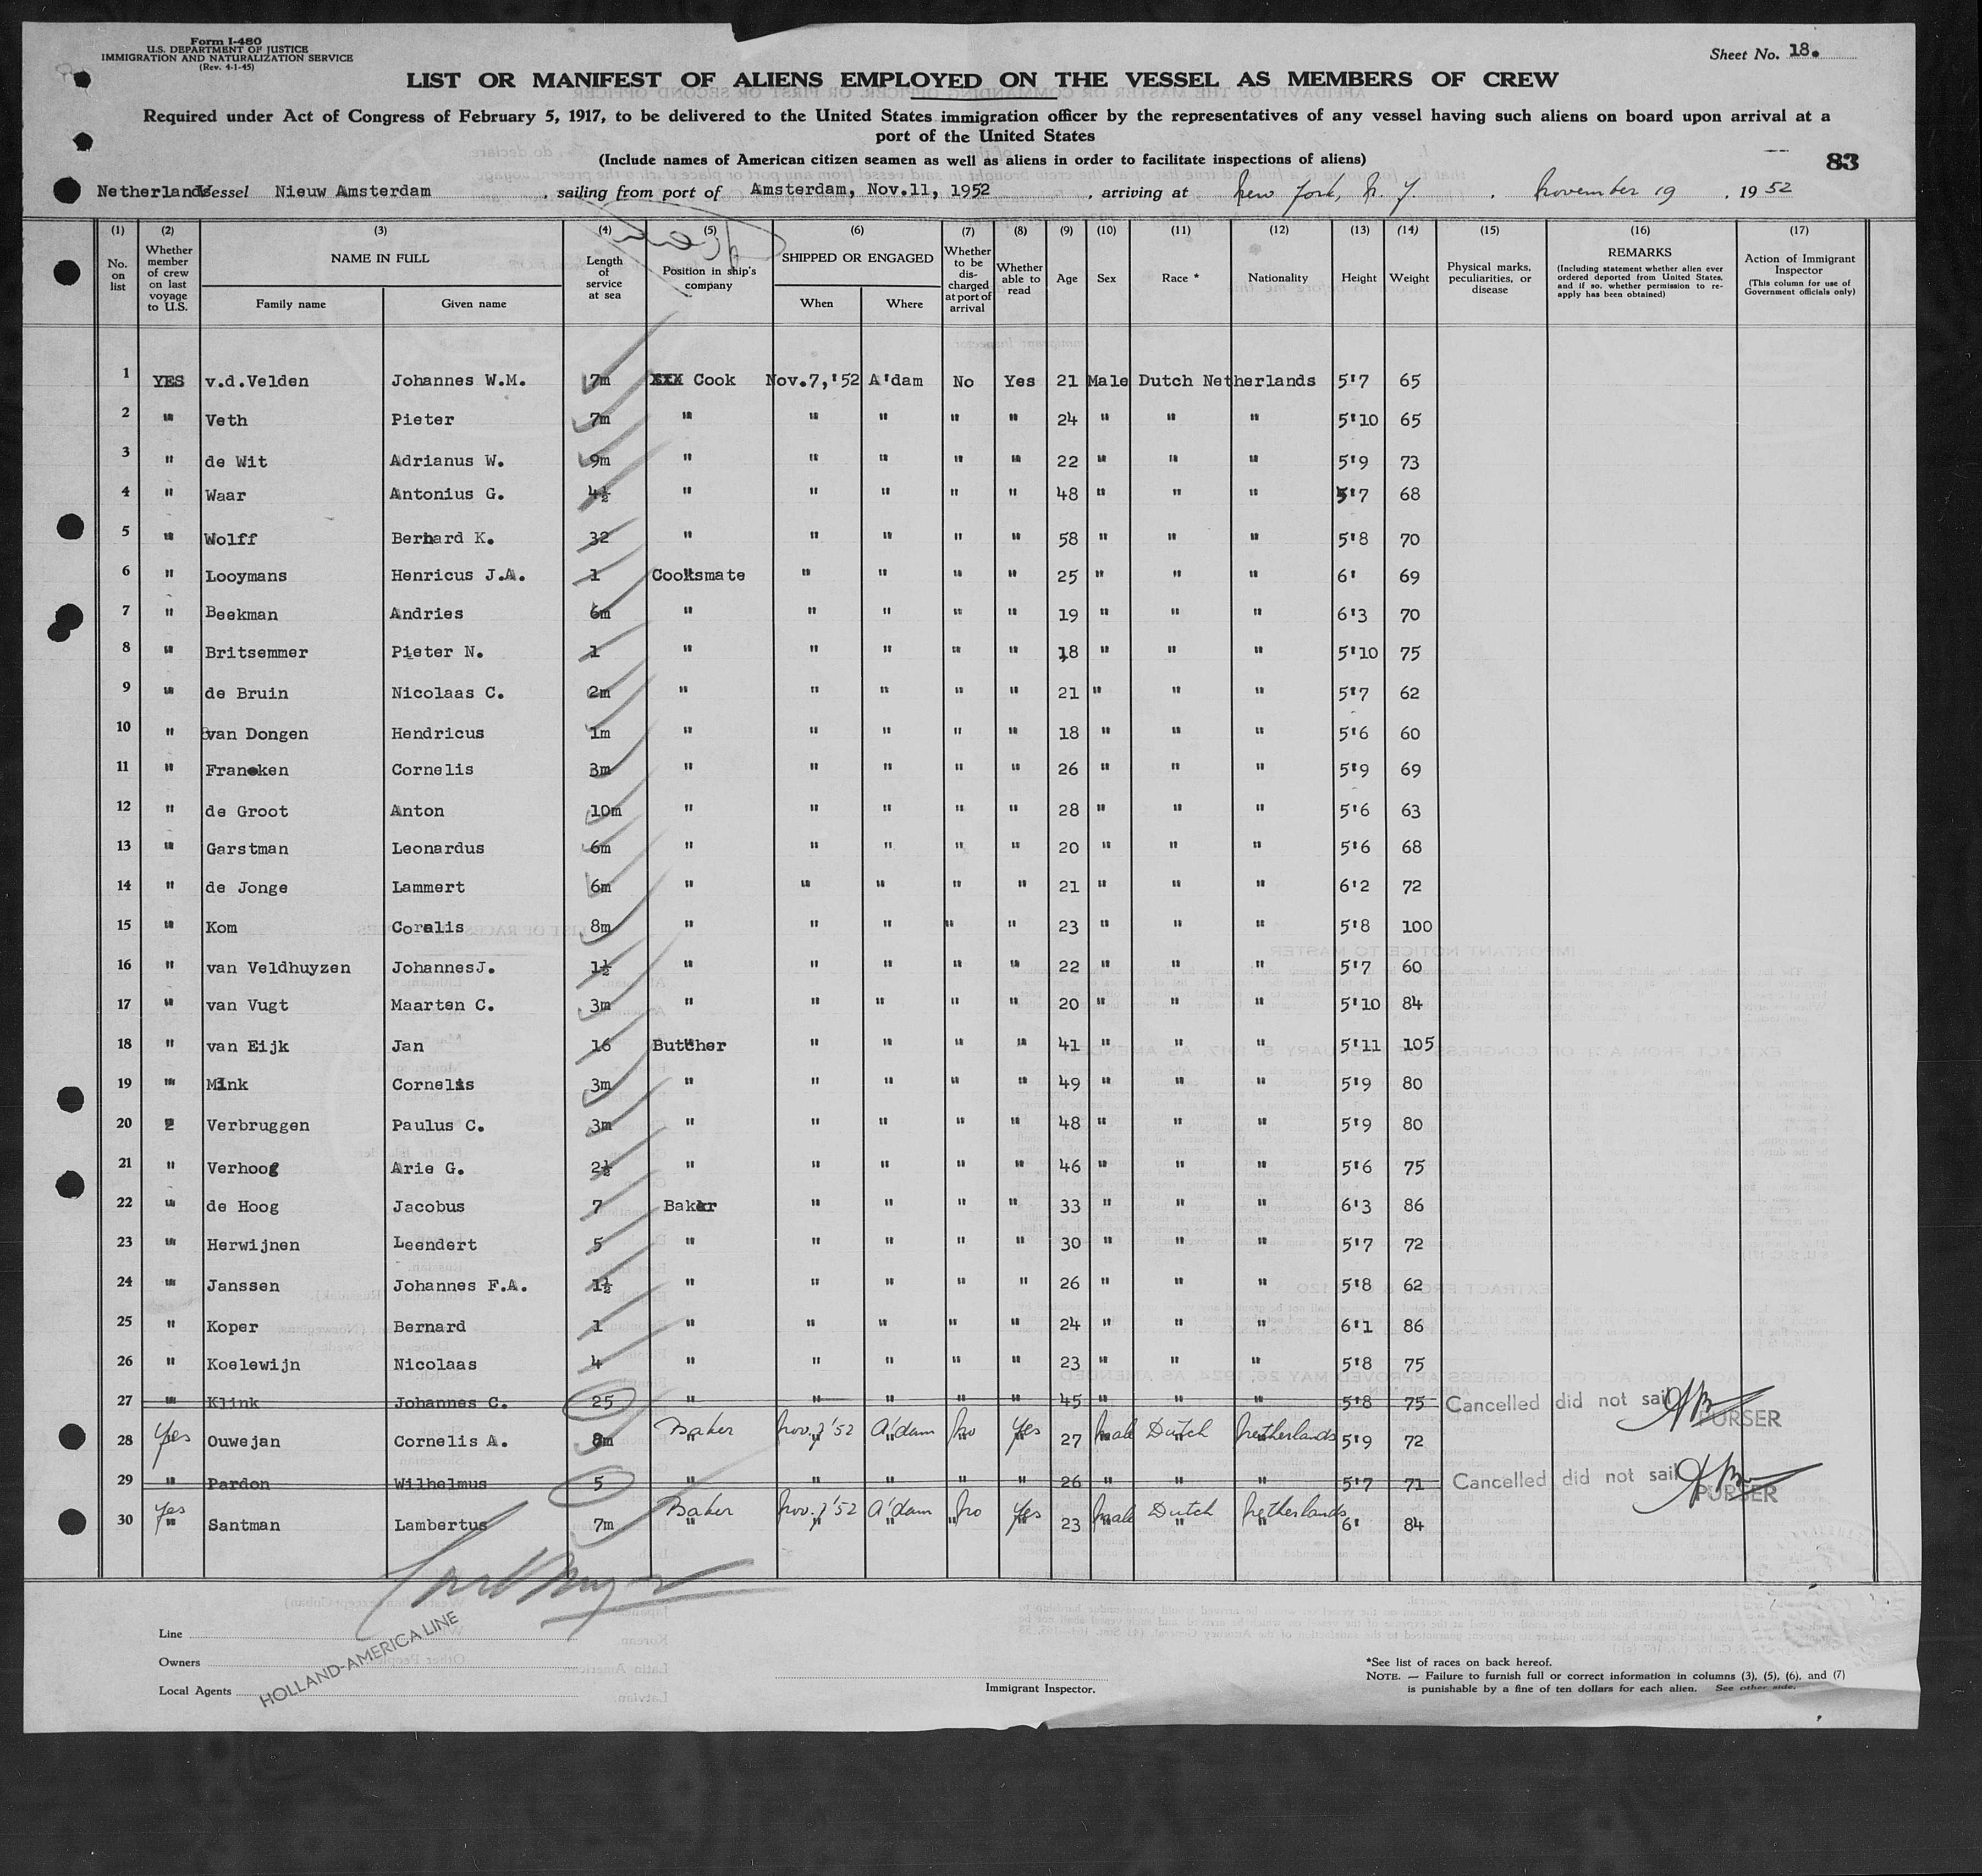 Form I-480
U.S. DEPARTMENT OF JUSTICE
IMMIGRATION AND NATURALIZATION SERVICE
(Rev. 4-1-45)
Sheet No. 18.
LIST OR MANIFEST OF ALIENS EMPLOYED ON THE VESSEL AS MEMBERS OF CREW
Required under Act of Congress of February 5, 1917, to be delivered to the United States immigration officer by the representatives of any vessel having such aliens on board upon arrival at a
port of the United States
(Include names of American citizen seamen as well as aliens in order to facilitate inspections of aliens)
83
Netherlands Vessel Nieuw Amsterdam , sailing from port of Amsterdam, Nov.11, 1952 , arriving at New York, N. Y. , November 19 , 19 52
(1) No. on list
(2) Whether member of crew on last voyage to U.S.
(3) NAME IN FULL Family name Given name
(4) Length of service at sea
(5) Position in ship's company
(6) SHIPPED OR ENGAGED When Where
(7) Whether to be discharged at port of arrival
(8) Whether able to read
(9) Age
(10) Sex
(11) Race *
(12) Nationality
(13) Height
(14) Weight
(15) Physical marks, peculiarities, or disease
(16) REMARKS (Including statement whether alien ever ordered deported from United States, and if so, whether permission to re-apply has been obtained)
(17) Action of Immigrant Inspector (This column for use of Government officials only)
1 YES v.d.Velden Johannes W.M. 7m XXX Cook Nov.7,'52 A'dam No Yes 21 Male Dutch Netherlands 5'7 65
2 " Veth Pieter 7m " " " " " 24 " " " 5'10 65
3 " de Wit Adrianus W. 9m " " " " " 22 " " " 5'9 73
4 " Waar Antonius G. 4½ " " " " " 48 " " " 5'7 68
5 " Wolff Bernard K. 32 " " " " " 58 " " " 5'8 70
6 " Looymans Henricus J.A. 1 Cooksmate " " " " 25 " " " 6' 69
7 " Beekman Andries 6m " " " " " 19 " " " 6'3 70
8 " Britsemmer Pieter N. 1 " " " " " 18 " " " 5'10 75
9 " de Bruin Nicolaas C. 2m " " " " " 21 " " " 5'7 62
10 " van Dongen Hendricus 1m " " " " " 18 " " " 5'6 60
11 " Francken Cornelis 3m " " " " " 26 " " " 5'9 69
12 " de Groot Anton 10m " " " " " 28 " " " 5'6 63
13 " Garstman Leonardus 6m " " " " " 20 " " " 5'6 68
14 " de Jonge Lammert 6m " " " " " 21 " " " 6'2 72
15 " Kom Coralis 8m " " " " " 23 " " " 5'8 100
16 " van Veldhuyzen JohannesJ. 1½ " " " " " 22 " " " 5'7 60
17 " van Vugt Maarten C. 3m " " " " " 20 " " " 5'10 84
18 " van Eijk Jan 16 Butcher " " " " 41 " " " 5'11 105
19 " Mink Cornelis 3m " " " " " 49 " " " 5'9 80
20 " Verbruggen Paulus C. 3m " " " " " 48 " " " 5'9 80
21 " Verhoog Arie G. 2½ " " " " " 46 " " " 5'6 75
22 " de Hoog Jacobus 7 Baker " " " " 33 " " " 6'3 86
23 " Herwijnen Leendert 5 " " " " " 30 " " " 5'7 72
24 " Janssen Johannes F.A. 1½ " " " " " 26 " " " 5'8 62
25 " Koper Bernard 1 " " " " " 24 " " " 6'1 86
26 " Koelewijn Nicolaas 4 " " " " " 23 " " " 5'8 75
27 " Klink Johannes C. 25 " " " " " 45 " " " 5'8 75 Cancelled did not sail PURSER
28 Yes Ouwejan Cornelis A. 8m Baker Nov. 7 '52 A'dam No Yes 27 Male Dutch Netherlands 5'9 72
29 " Pardon Wilhelmus 5 " " " " " 26 " " " 5'7 71 Cancelled did not sail PURSER
30 Yes Santman Lambertus 7m Baker Nov. 7 '52 A'dam No Yes 23 Male Dutch Netherlands 6' 84
Line
Owners
Local Agents
HOLLAND-AMERICA LINE
Immigrant Inspector.
*See list of races on back hereof.
NOTE. — Failure to furnish full or correct information in columns (3), (5), (6), and (7)
is punishable by a fine of ten dollars for each alien. See other side.